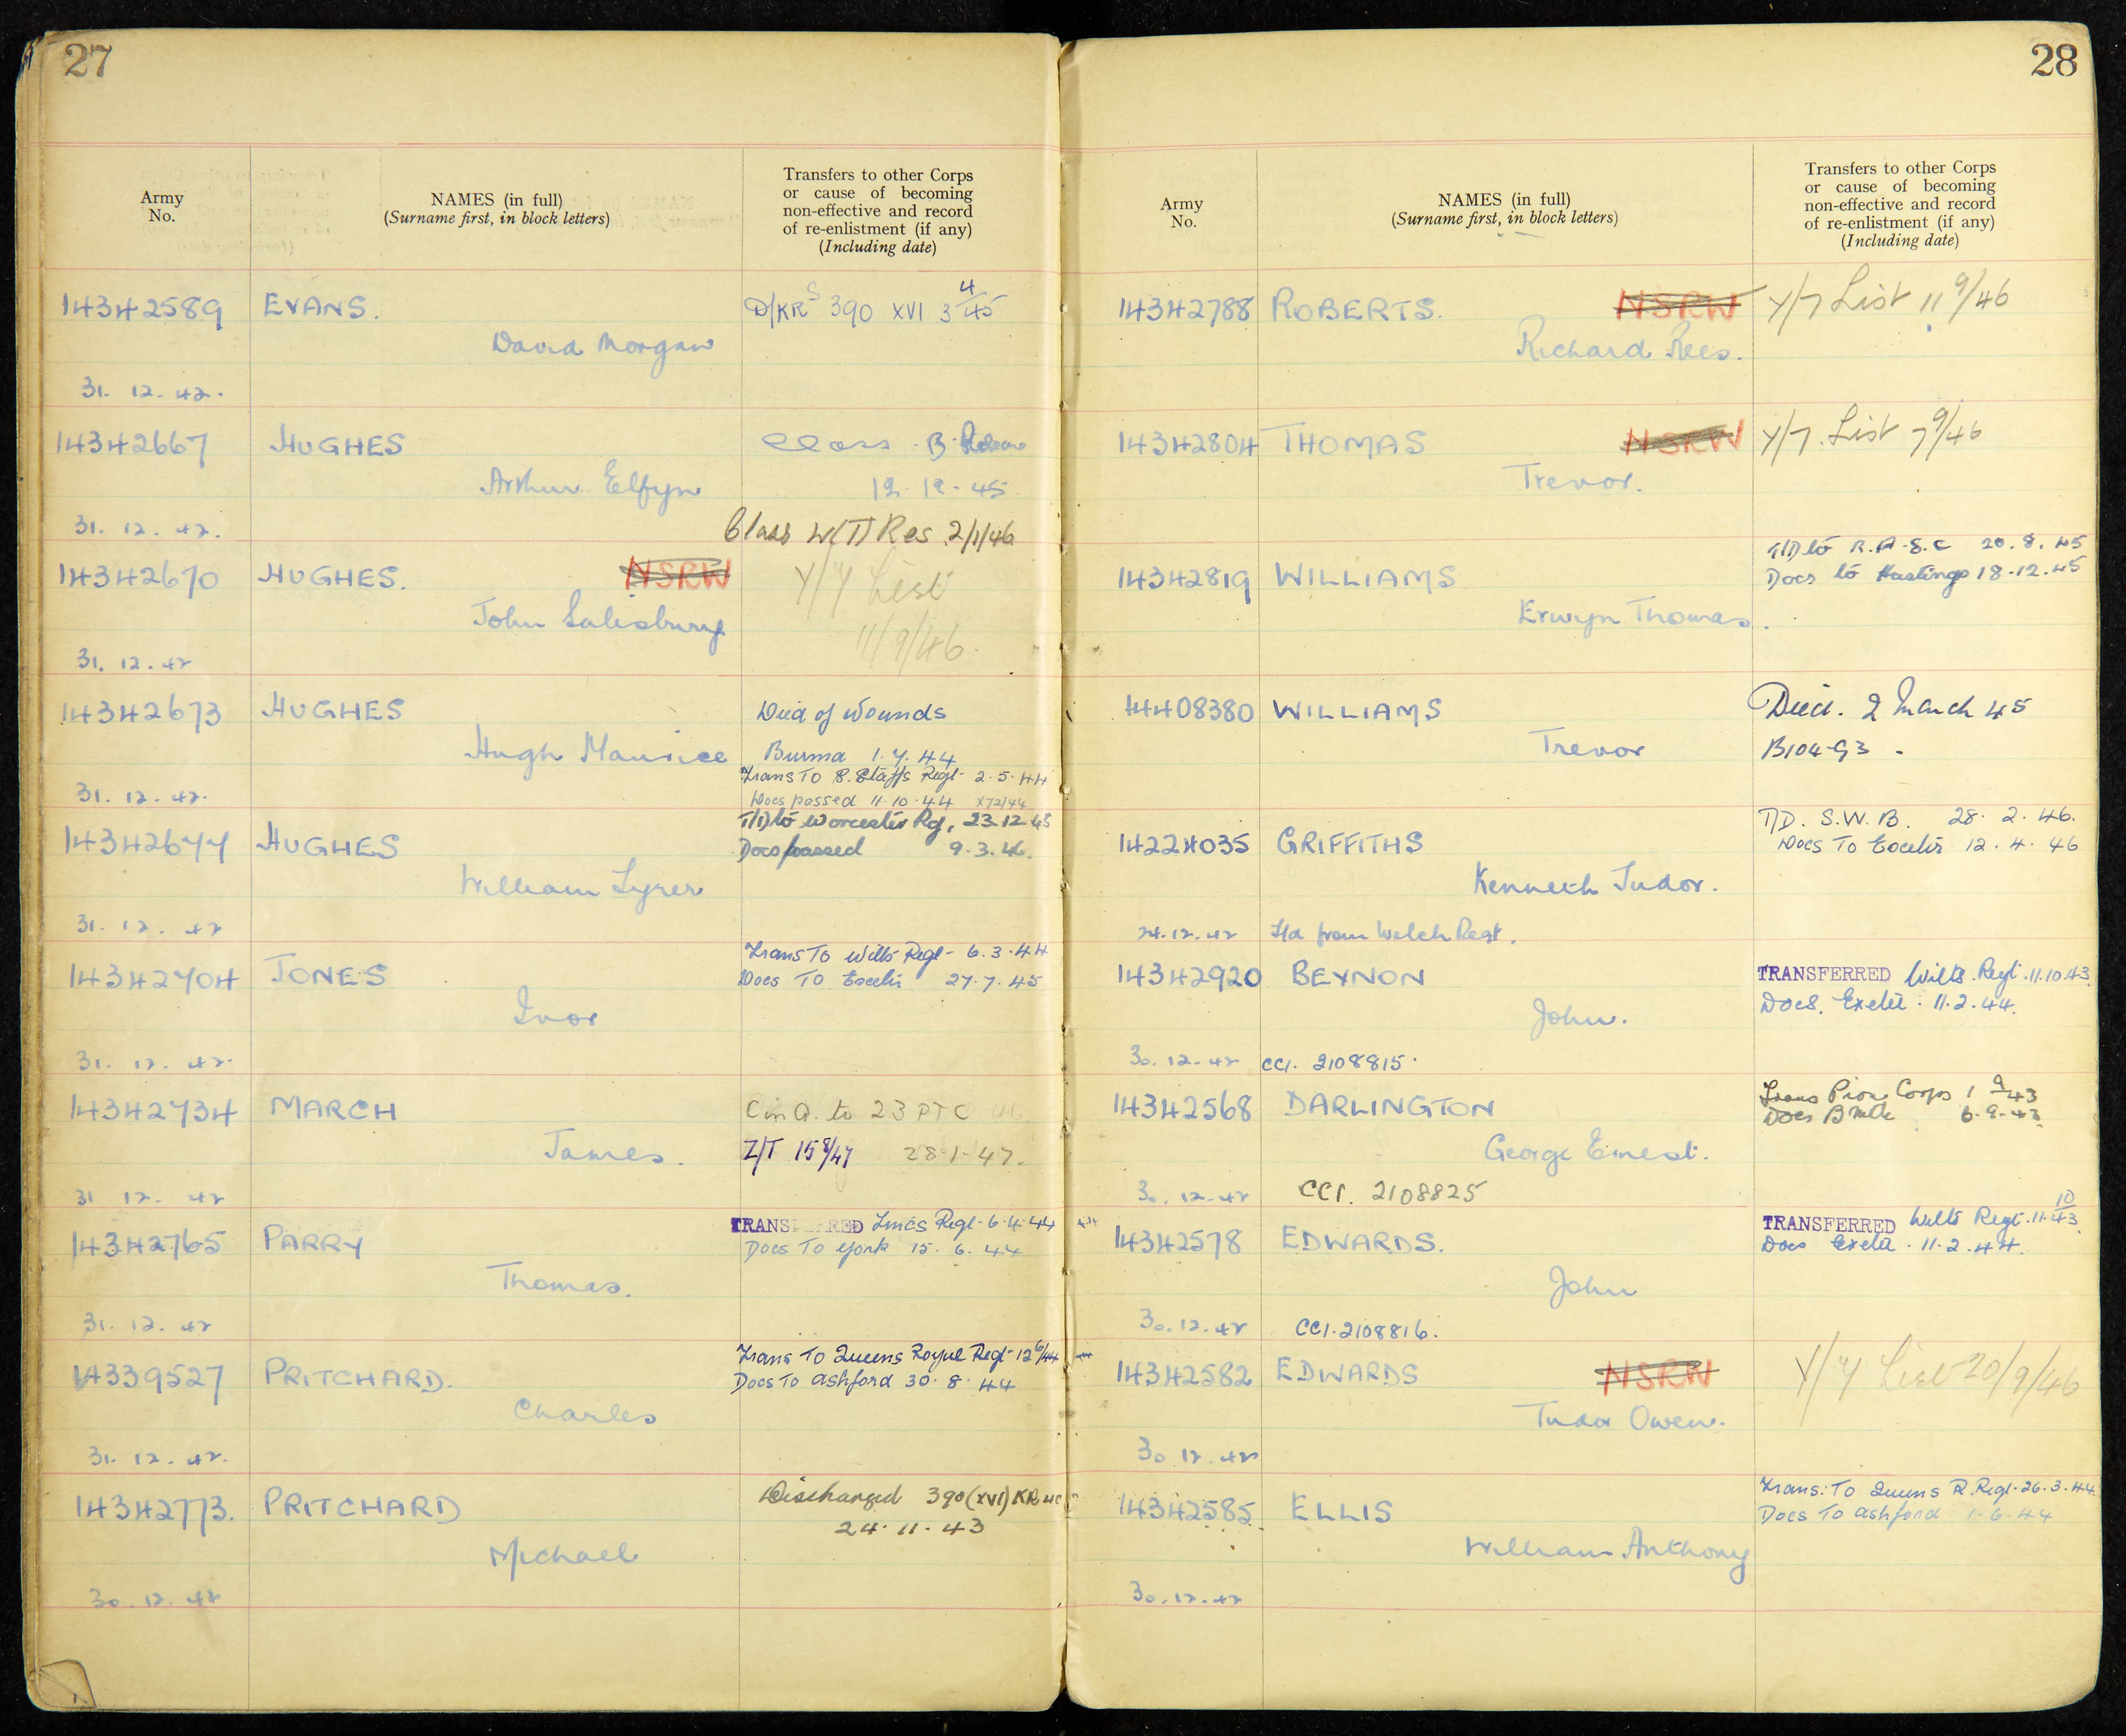 27
Army
No.
NAMES (in full)
(Surname first, in block letters)
Transfers to other Corps
or cause of becoming
non-effective and record
of re-enlistment (if any)
(Including date)
14342589 EVANS. D/KRS 390 XVI 3 4/45
David Morgan
31. 12. 42.
14342667 HUGHES Class B Release
Arthur Elfyn 12. 12. 45
31. 12. 42. Class W(T) Res 2/1/46
14342670 HUGHES. NSRW Y/7 List
John Salisbury 11/9/46.
31. 12. 42
14342673 HUGHES Died of Wounds
Hugh Maurice Burma 1. 7. 44
Trans To S. Staffs Regt 2. 5. 44
31. 12. 42. Docs passed 11. 10. 44 X72/44
T/D to Worcester Rg, 23.12.43
14342677 HUGHES Docs passed 9.3.46.
William
31. 12. 42
Trans To Wilts Regt - 6. 3. 44
14342704 JONES Docs To Exeter 27. 7. 45
Ivor
31. 12. 42.
14342734 MARCH C in A. to 23 PTC
James. Z/T 15 8/47 28-1-47.
31 12. 42
TRANSFERRED Lincs Regt - 6. 4. 44
14342765 PARRY Docs To York 15. 6. 44
Thomas.
31. 12. 42
Trans To Queens Royal Regt - 12 6/44
14339527 PRITCHARD. Docs To Ashford 30. 8. 44
Charles
31. 12. 42.
14342773. PRITCHARD Discharged 390 (XVI) KR
24. 11. 43
Michael
30. 12. 42
28
Army
No.
NAMES (in full)
(Surname first, in block letters)
Transfers to other Corps
or cause of becoming
non-effective and record
of re-enlistment (if any)
(Including date)
14342788 ROBERTS. NSRW Y/7 List 11 9/46
Richard Rees.
14342804 THOMAS NSRW Y/7. List 7 9/46
Trevor.
T/D to R.A.S.C 20. 8. 45
14342819 WILLIAMS Docs to Hastings 18.12.45
Erwyn Thomas.
14408380 WILLIAMS Died. 2 March 45
Trevor B104-93 -
T/D. S.W.B. 28. 2. 46.
14224035 GRIFFITHS Docs To Exeter 12. 4. 46
Kenneth Tudor.
24. 12. 42 from Welch Regt.
14342920 BEYNON TRANSFERRED Wilts. Regt. 11.10.43.
Docs. Exeter. 11. 2. 44.
John.
30. 12. 42 CC1. 2108815.
Trans Pion Corps 1 9 43
14342568 DARLINGTON Docs 6. 9. 43
George Ernest.
30. 12. 42 CC1. 2108825
TRANSFERRED Wilts Regt. 11. 10/43
14342578 EDWARDS. Docs Exeter. 11. 2. 44.
John
30. 12. 42 CC1. 2108816.
14342582 EDWARDS NSRW Y/7 List 20/9/46
Tudor Owen.
30 12. 42
Trans: To Queens R. Regt. 26. 3. 44.
14342585 ELLIS Docs To Ashford 1. 6. 44
William Anthony
30. 12. 42